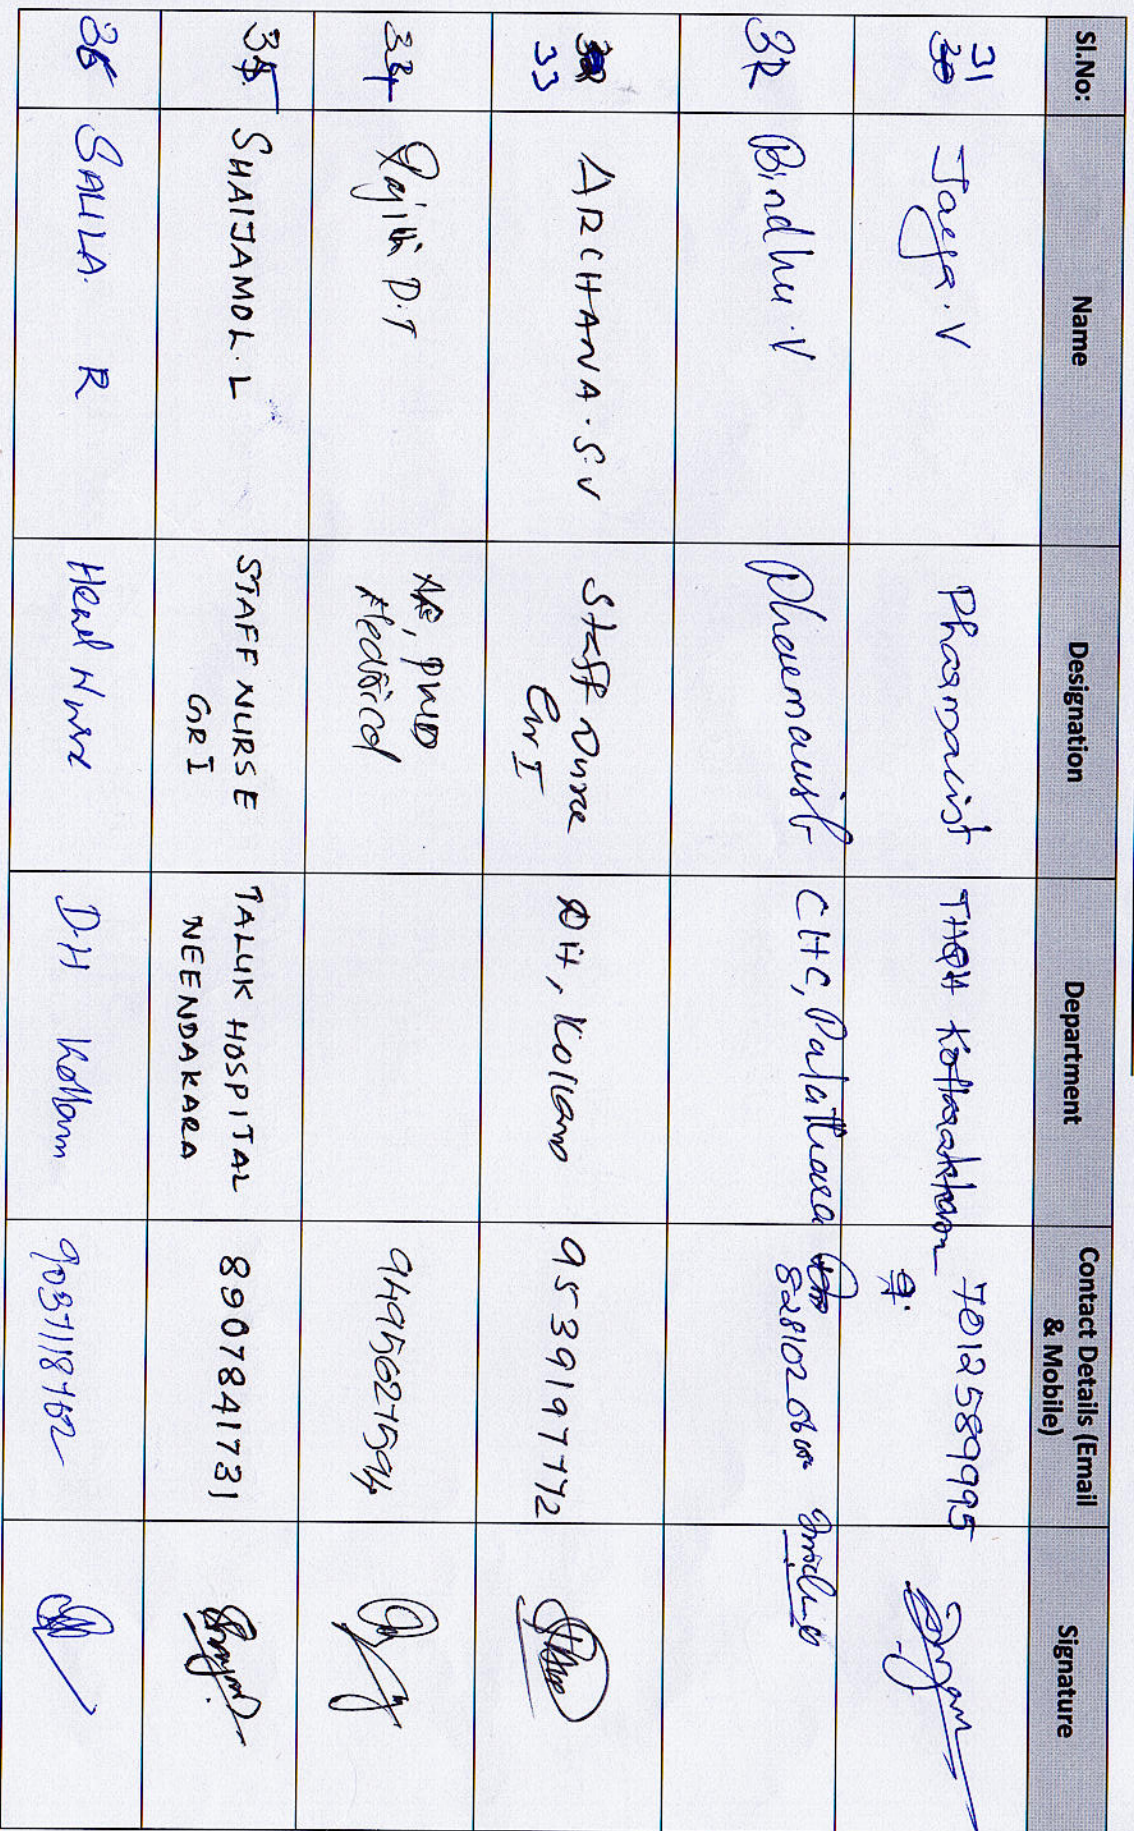 Sl.No: Name Designation Department Contact Details (Email & Mobile) Signature
31 Jaeya.V Pharmacist THQH Kottarakkara 7012589995
32 Bindhu.V Pharmacist CHC, Palathara
33 ARCHANA.S.V Staff Nurse Gr I DH, Kollam 9539197772
34 Rajith D.T AE, PWD 9495627594
35 SHAIJAMOL.L STAFF NURSE GR I TALUK HOSPITAL NEENDAKARA 8907841731
36 SALILA. R Head Nurse DH Kollam 9037118762